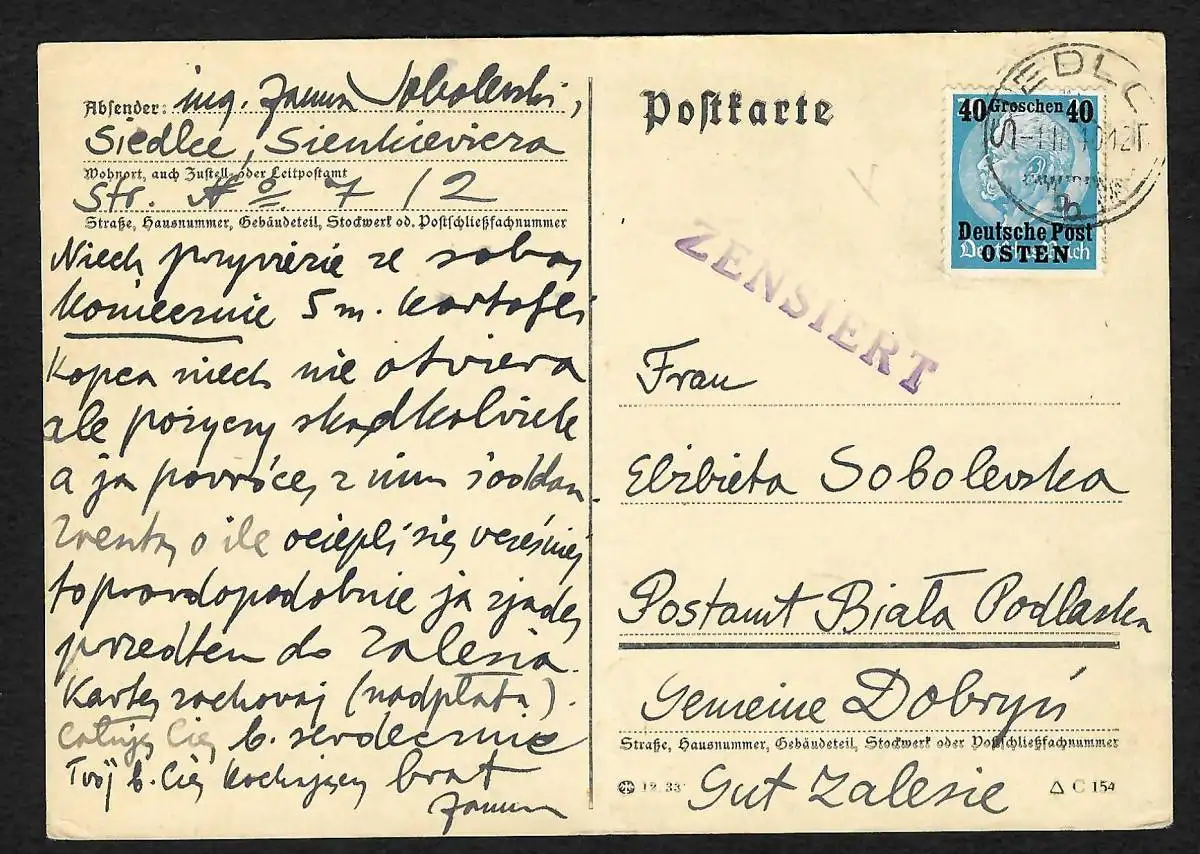 Absender: ing. Janusz Sobolewski,
Siedlce, Sienkiewicza
Wohnort, auch Zustell- oder Leitpostamt
Str. No. 7/2
Straße, Hausnummer, Gebäudeteil, Stockwerk od. Postschließfachnummer
Niech przywiezie ze sobą
koniecznie 5 m. kartofli
Kopca niech nie otwiera
ale pożyczy skądkolwiek
a ja powrócę z nim i oddam
Zresztą o ile ociepli się wcześniej
to prawdopodobnie ja zjadę
przedtem do Zalesia.
Kartę zachowaj (nadpłata).
Całuję Cię b. serdecznie
Twój b. Cię kochający brat
Janusz
Postkarte
40 Groschen 40
Deutsche Post
OSTEN
SIEDLC
b
ZENSIERT
Frau
Elżbieta Sobolewska
Postamt Biała Podlaska
Gemeine Dobryń
Straße, Hausnummer, Gebäudeteil, Stockwerk oder Postschließfachnummer
Gut Zalesie
12. 33 C 154